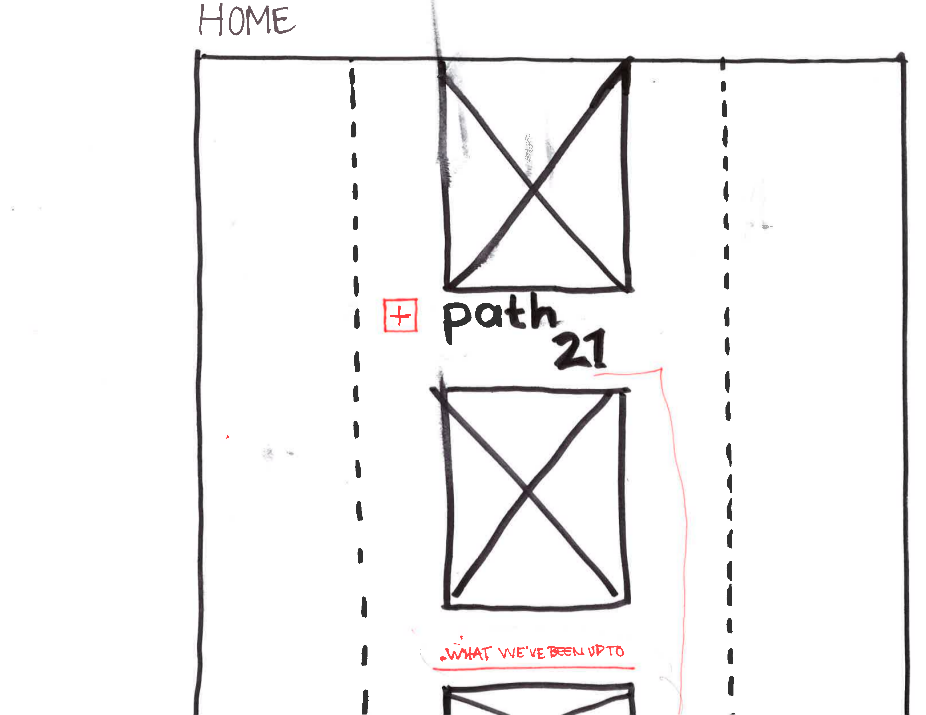 HOME
+ path
21
.WHAT WE'VE BEEN UP TO